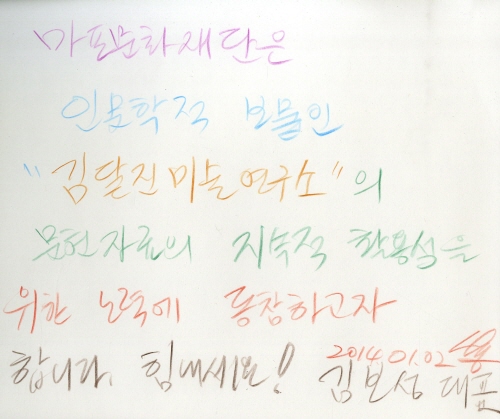 마포문화재단은
인문학적 보물인
"김달진미술연구소"의
문헌자료의 지속적 활용성을
위한 노력에 동참하고자
합니다. 힘내세요! 2014.01.02
김보성 대표